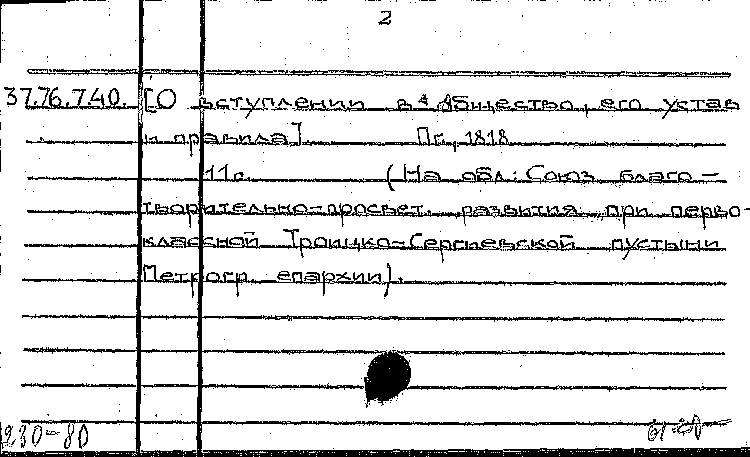 2
37.76.7.40. [О вступлении в общество, его устав
и правила]. Пг., 1818
11с. (На обл.: Союз благо-
творительно-просвет. развития при перво-
классной Троицко-Сергиевской пустыни
Петрогр. епархии).
230-80